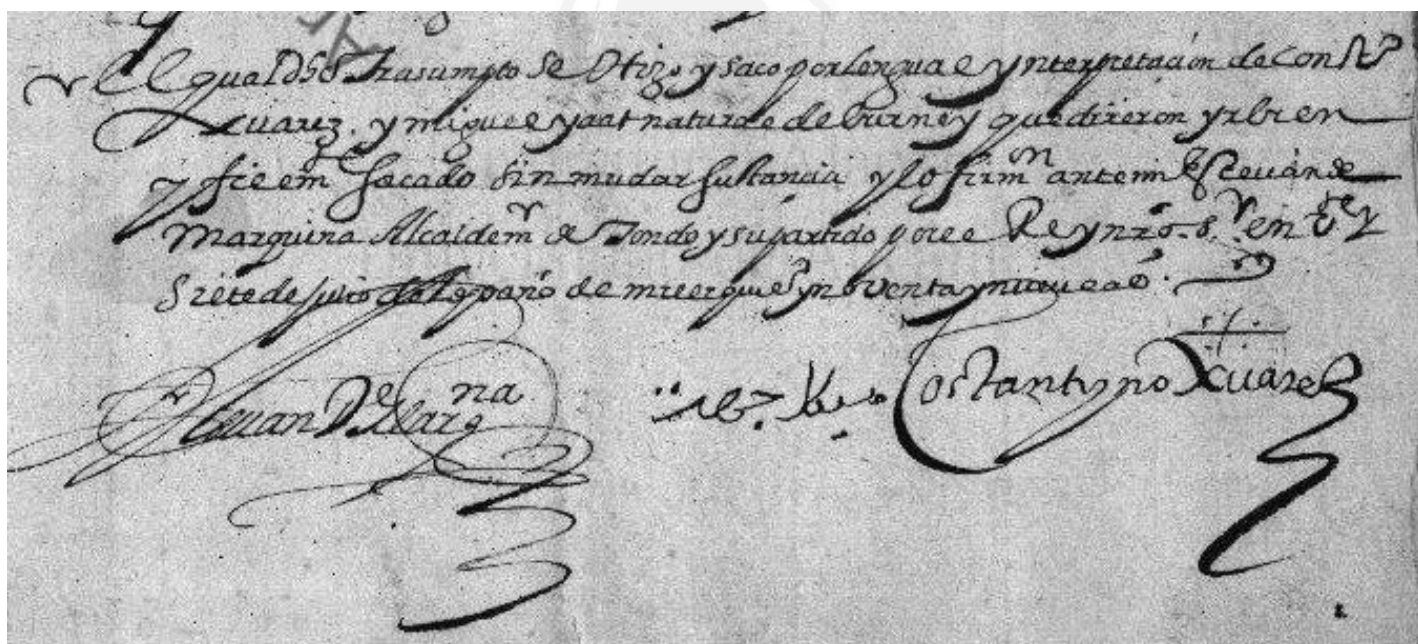 El qual dho Trasumpto se hizo y saco por lengua e ynterpretaçion de
Xuarez. y miguel natural de burney que dixeron yr bien
y fielmte sacado sin mudar sustancia y lo firmon ante mi Esteuan de
Marquina Alcalde mr de Tondo y su partido por el Rey nro. sr. en Vte y
Siete de Julio de mill y quis y nobenta y nueue aos.
Esteuan De Marqna
Costantyno Xuares